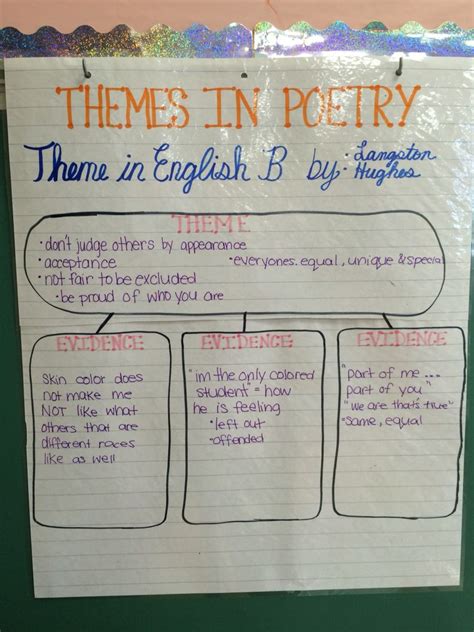 THEMES IN POETRY
Theme in English B by: Langston
Hughes
THEME
•don't judge others by appearance
•acceptance •everyones equal, unique & special
•not fair to be excluded
•be proud of who you are
EVIDENCE
Skin color does
not make me
NOT like what
others that are
different races
like as well
EVIDENCE
"im the only colored
student" = how
he is feeling
•left out
•offended
EVIDENCE
"part of me...
part of you"
"we are that's true"
•same, equal